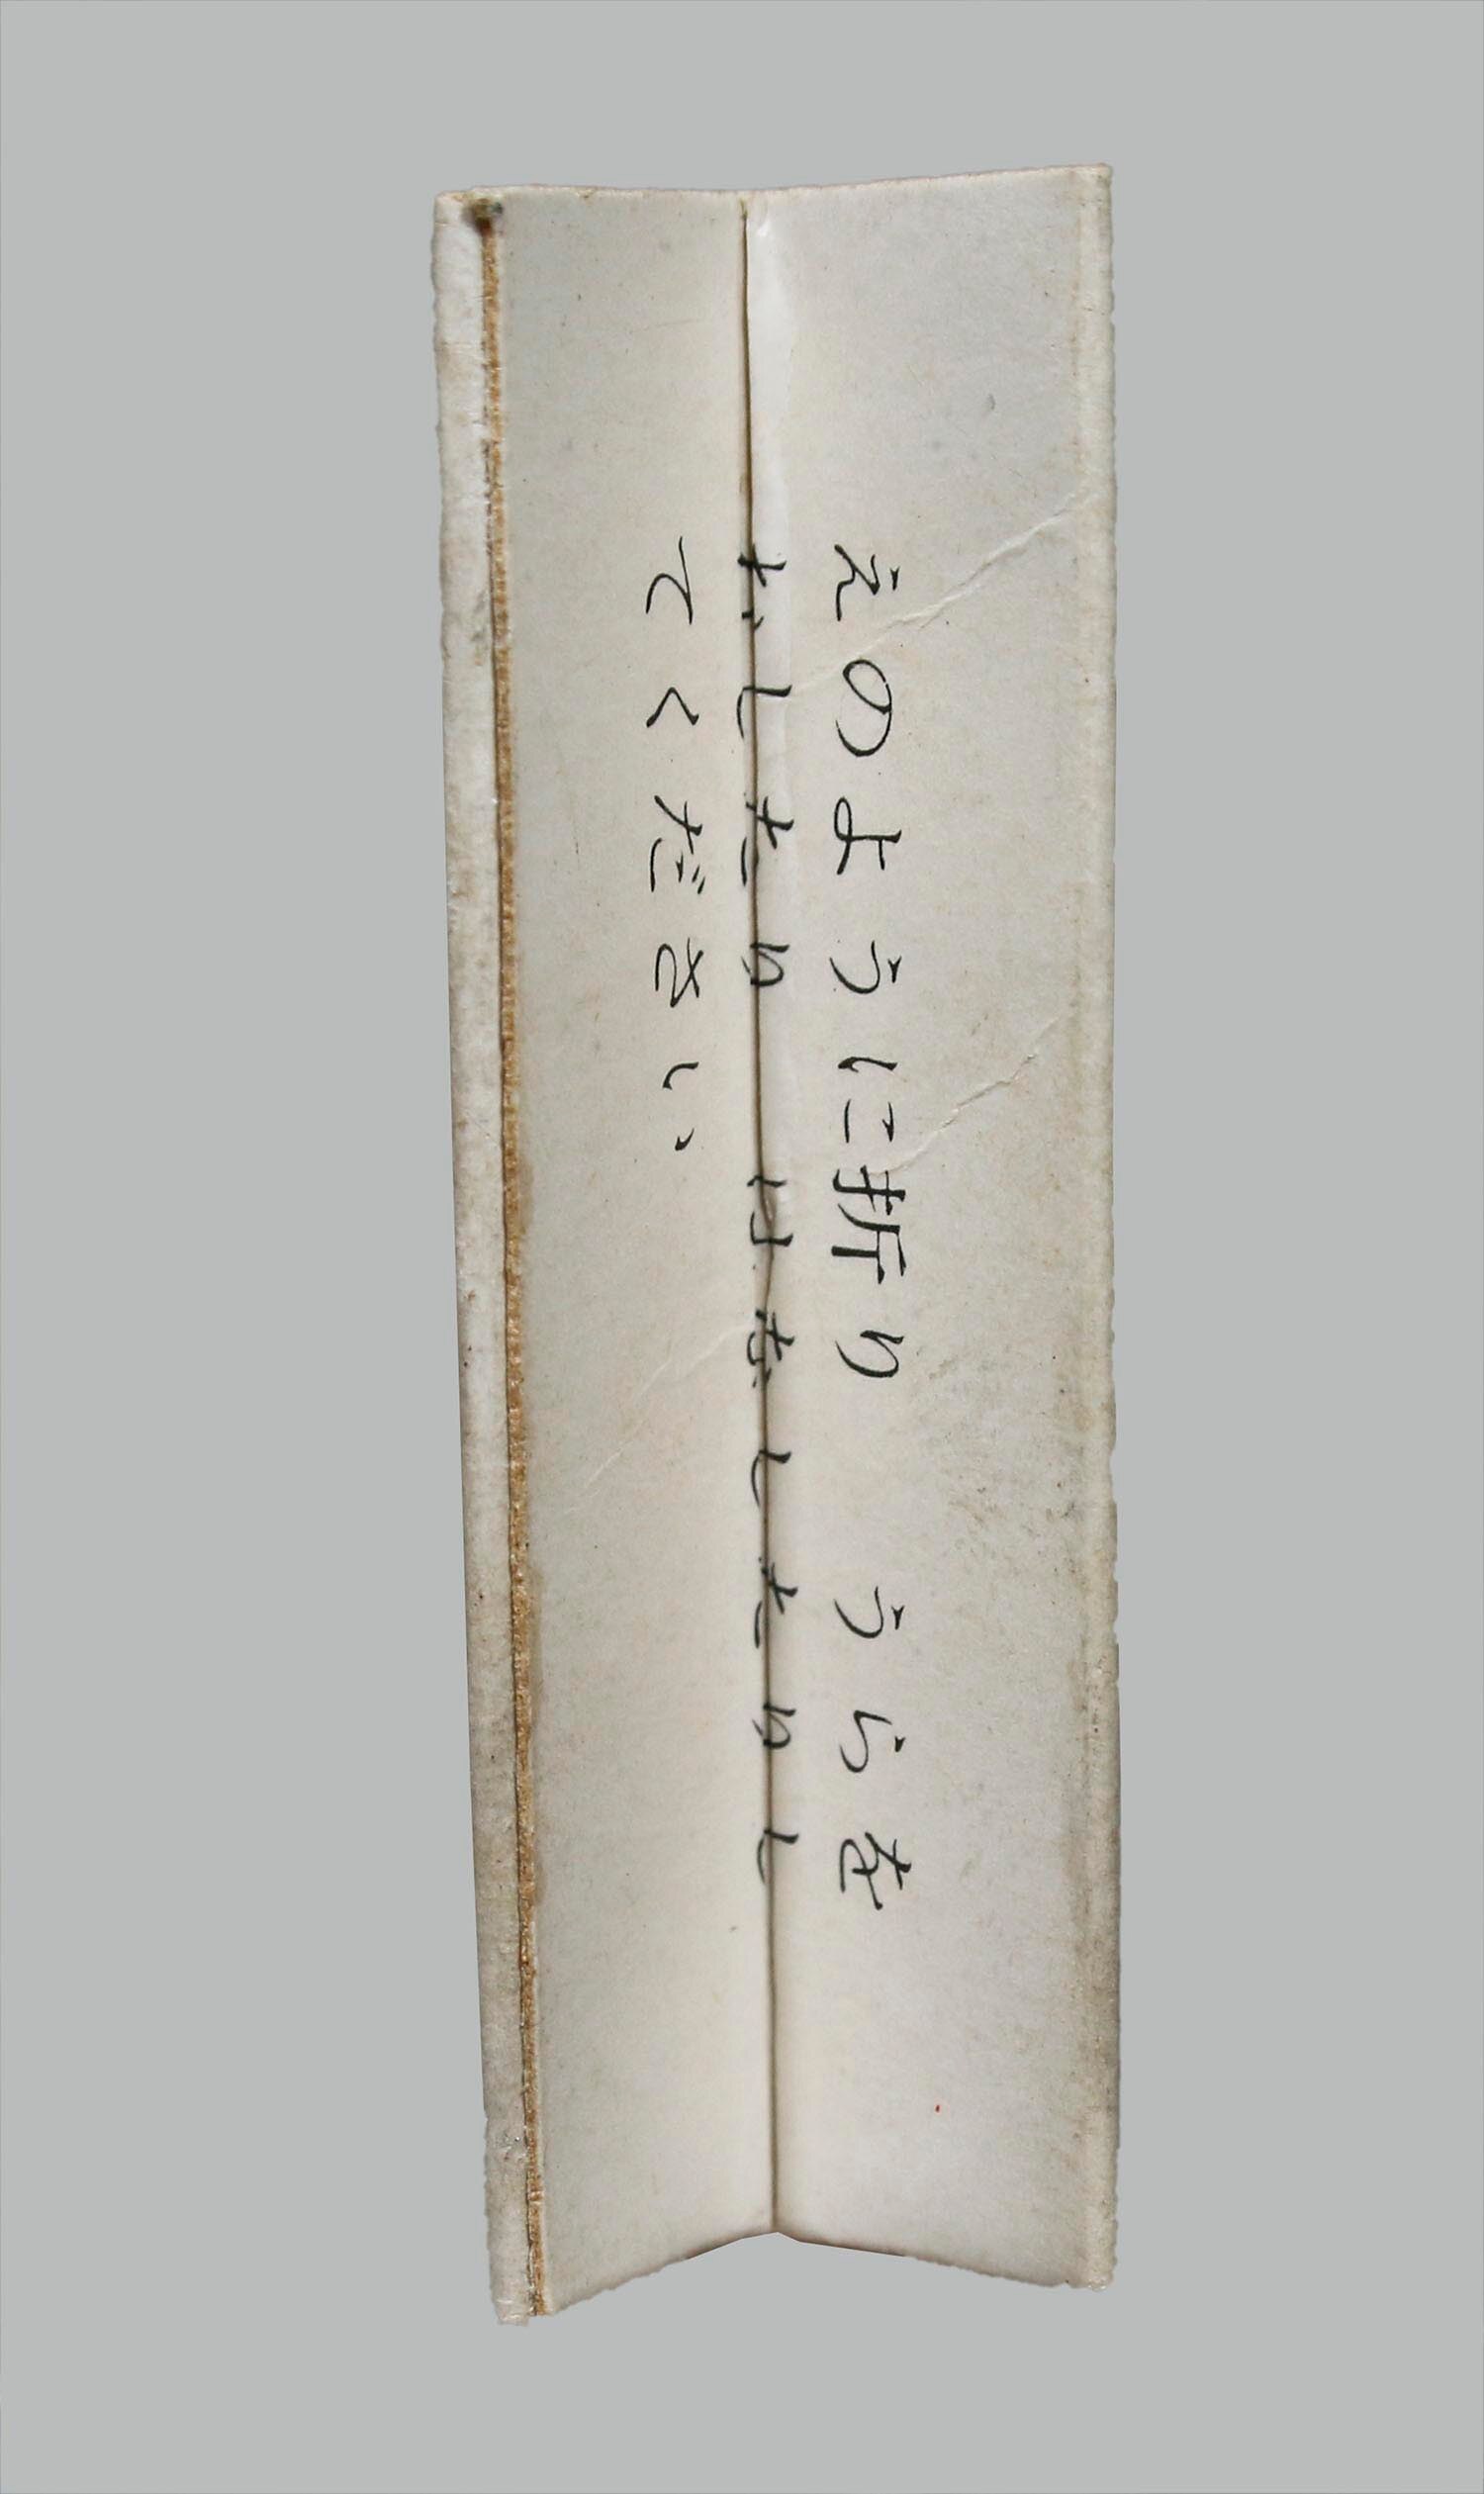 えのように折り うらを
おしたり はなしたりし
てください